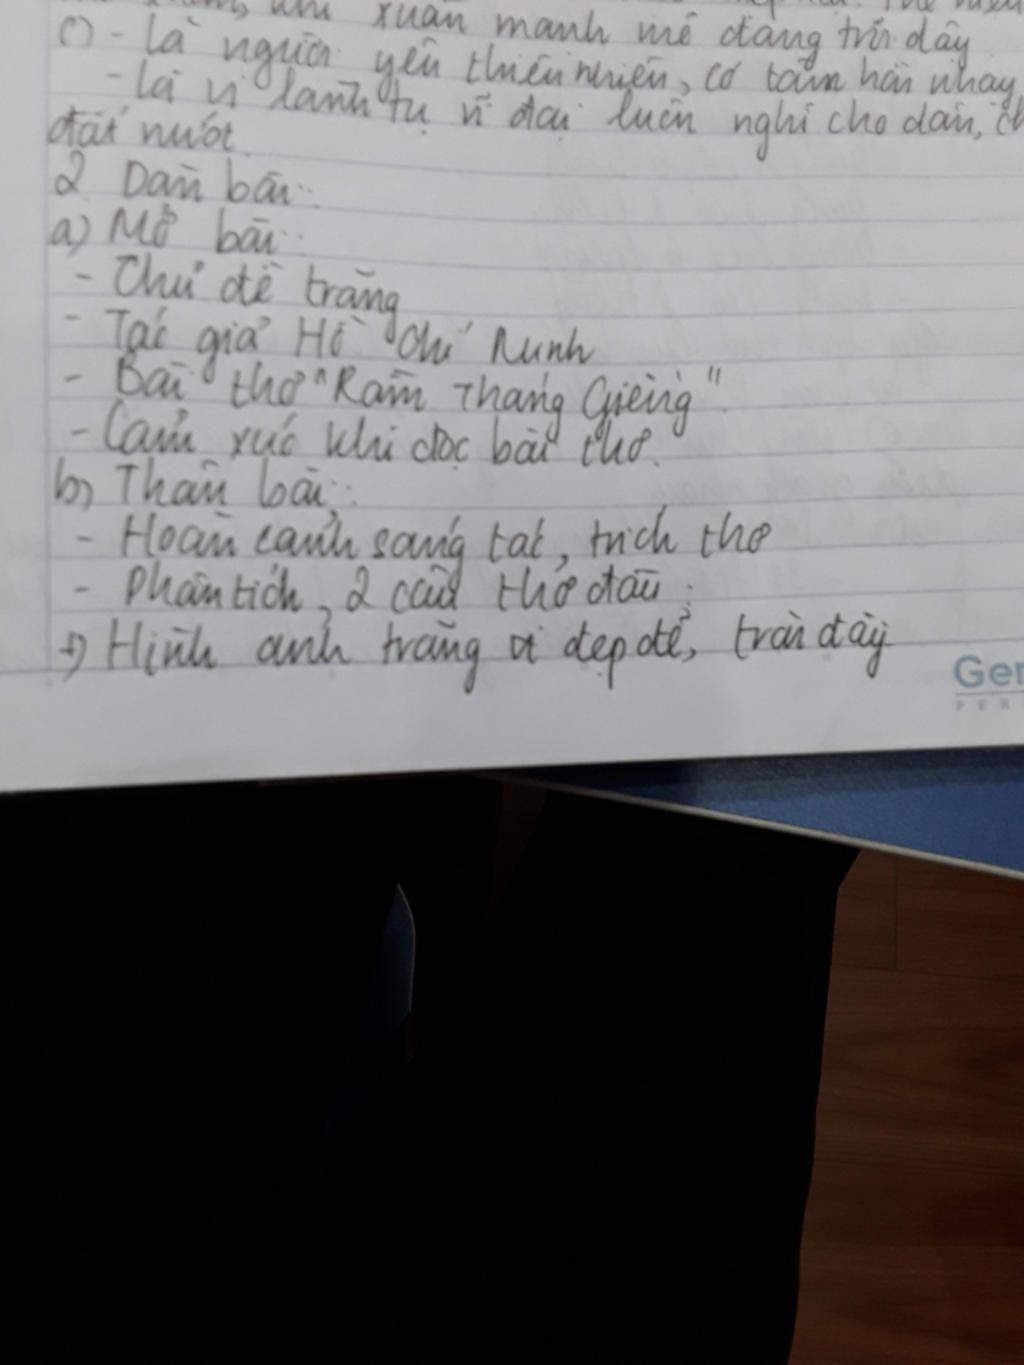 xuân mạnh mẽ đang trỗi dậy
c) - Là người yêu thiên nhiên, có tâm hồn nhạy
- Là vị lãnh tụ vĩ đại luôn nghĩ cho dân, ch
đất nước
2 Dàn bài:
a) Mở bài:
- Chủ đề trăng
- Tác giả Hồ Chí Minh
- Bài thơ "Rằm Tháng Giêng"
- Cảm xúc khi đọc bài thơ.
b) Thân bài:
- Hoàn cảnh sáng tác, trích thơ
- Phân tích 2 câu thơ đầu:
+) Hình ảnh trăng đẹp đẽ, tràn đầy
Ger
PER